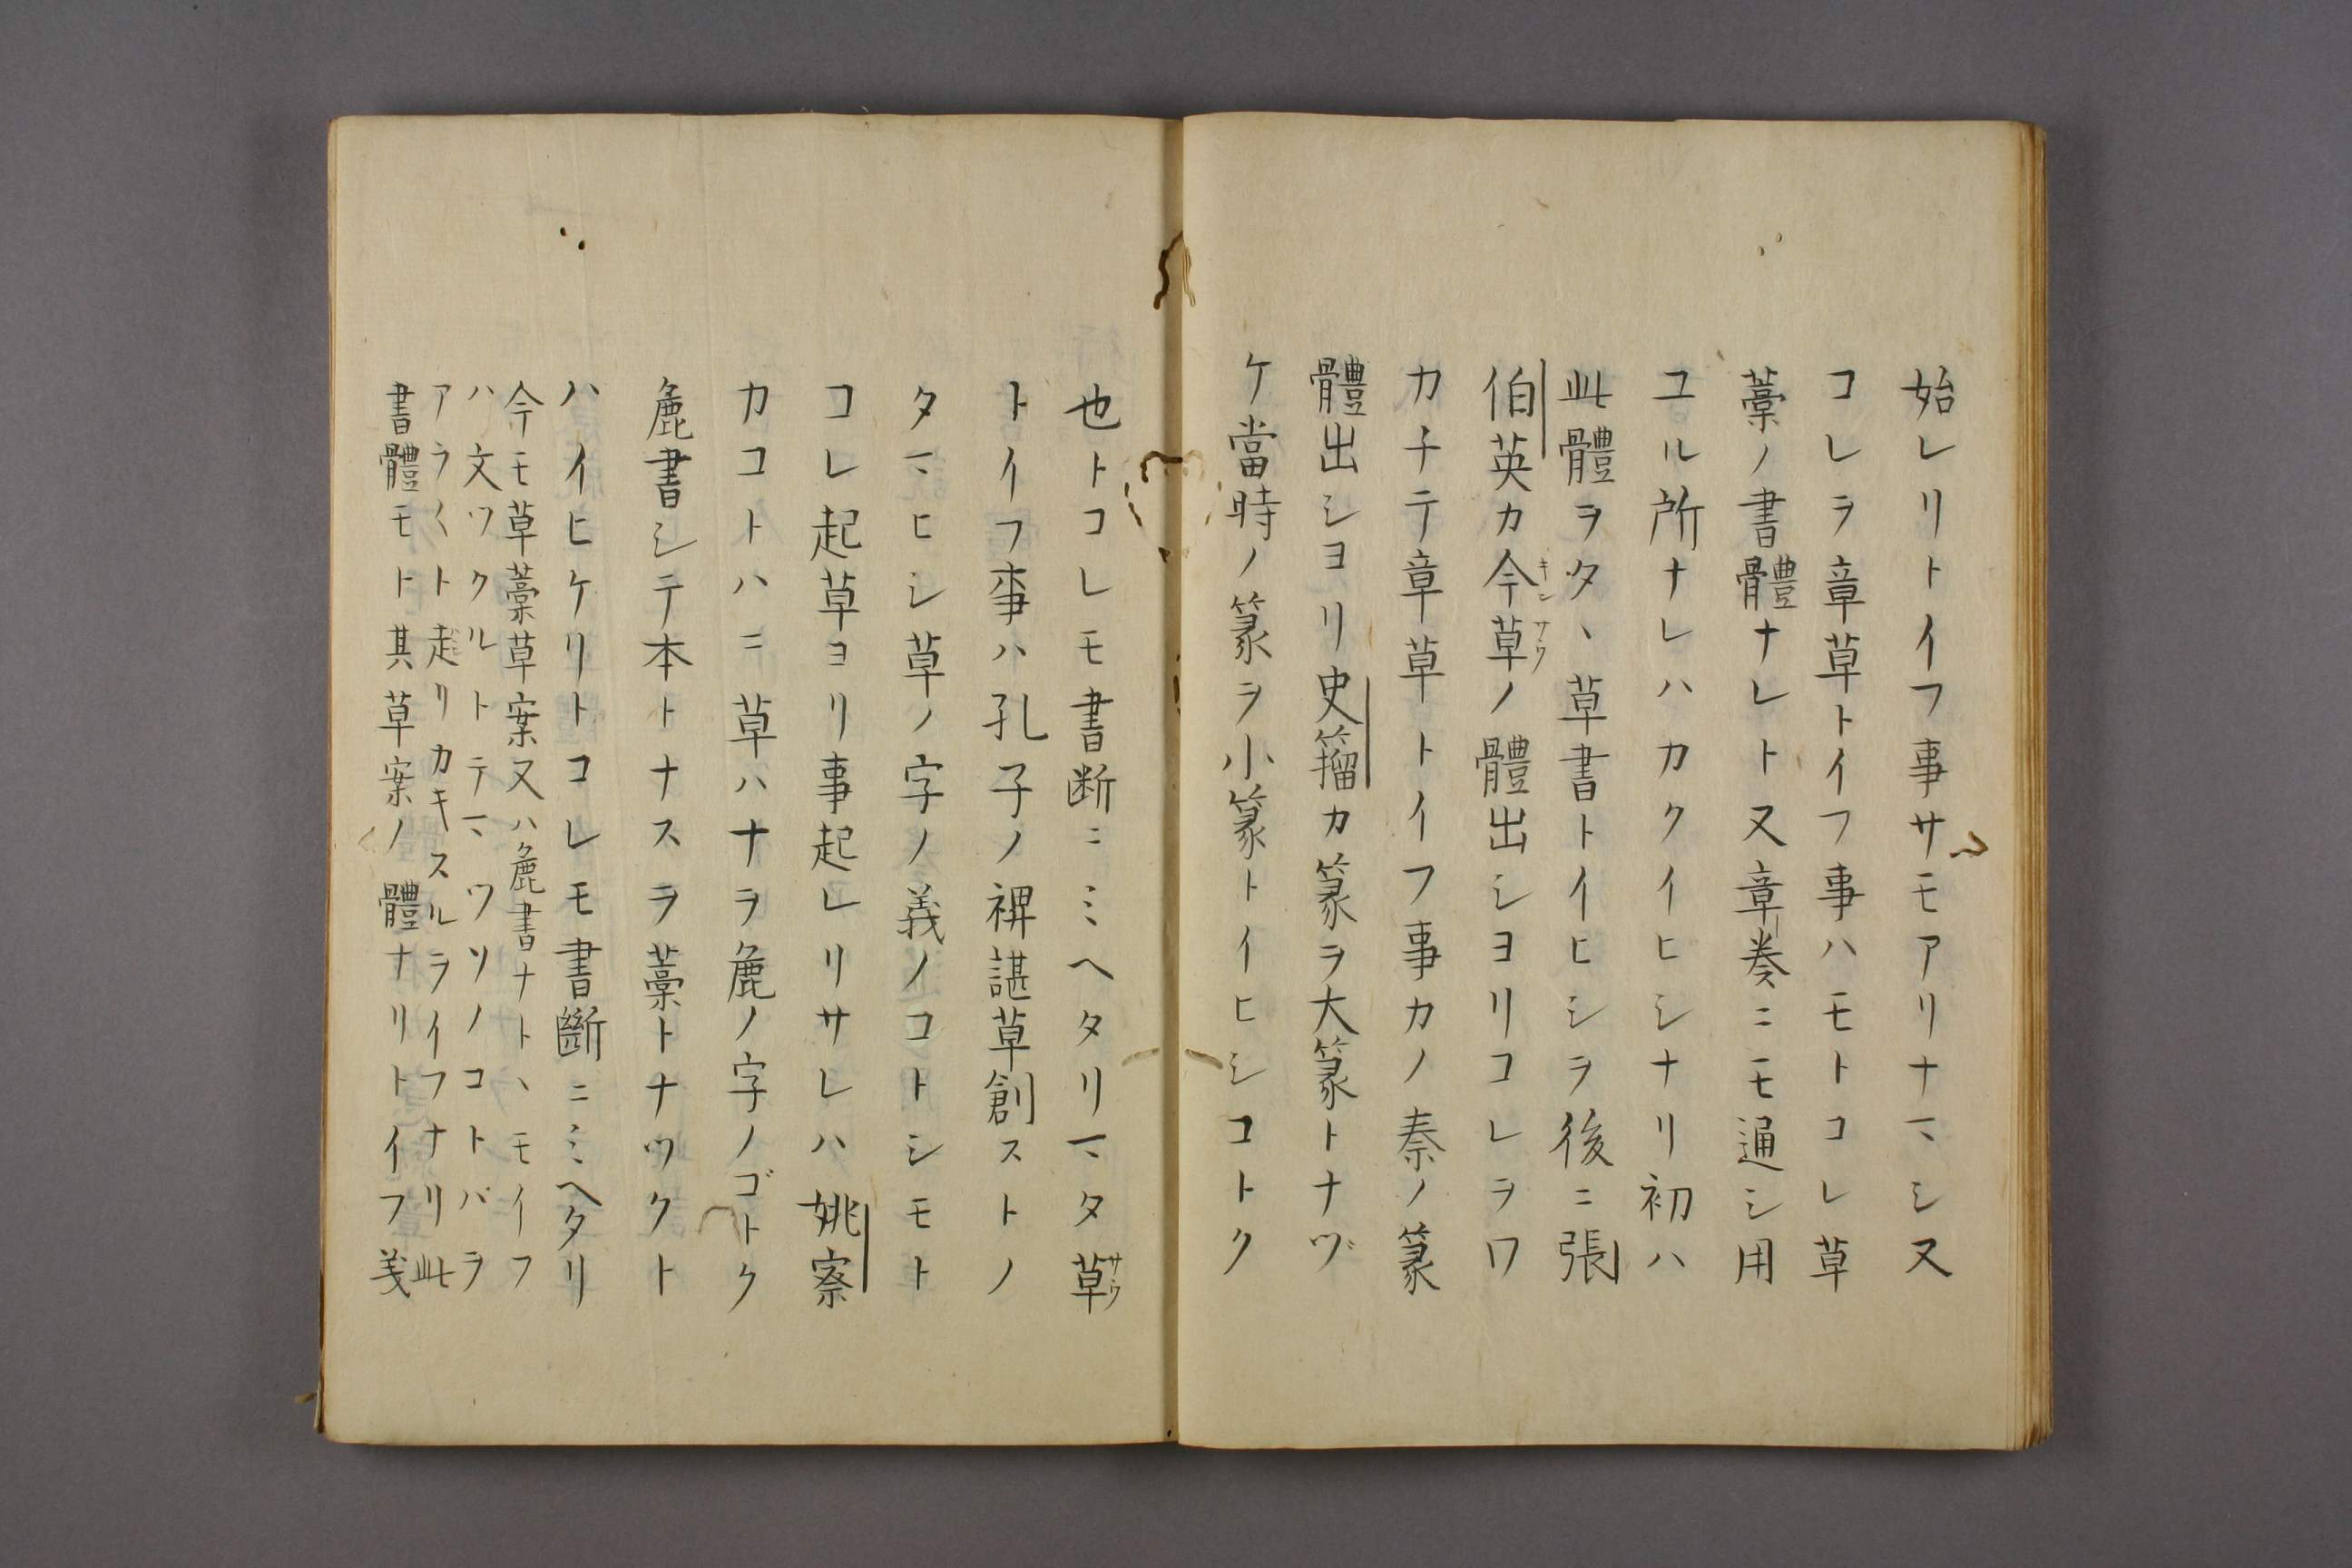 始レリトイフ事サモアリナマシ又
コレヲ章草トイフ事ハモトコレ草
藁ノ書體ナレト又章奏ニモ通シ用
ユル所ナレハカクイヒシナリ初ハ
此體ヲタヽ草書トイヒシヲ後ニ張
伯英カ今草ノ體出シヨリコレヲワ
カチテ章草トイフ事カノ秦ノ篆
體出シヨリ史籀カ篆ヲ大篆トナヅ
ケ當時ノ篆ヲ小篆トイヒシコトク
也トコレモ書断ニミヘタリマタ草
トイフ事ハ孔子ノ裨諶草創ストノ
タマヒシ草ノ字ノ義ノコトシモト
コレ起草ヨリ事起レリサレハ姚察
カコトハニ草ハナヲ麁ノ字ノゴトク
麁書シテ本トナスヲ藁トナツクト
ハイヒケリトコレモ書斷ニミヘタリ
今モ草藁草案又ハ麁書ナトヽモイフ
ハ文ツクルトテマツソノコトバヲ
アラ〱ト走リカキスルヲイフナリ此
書體モト其草案ノ體ナリトイフ義